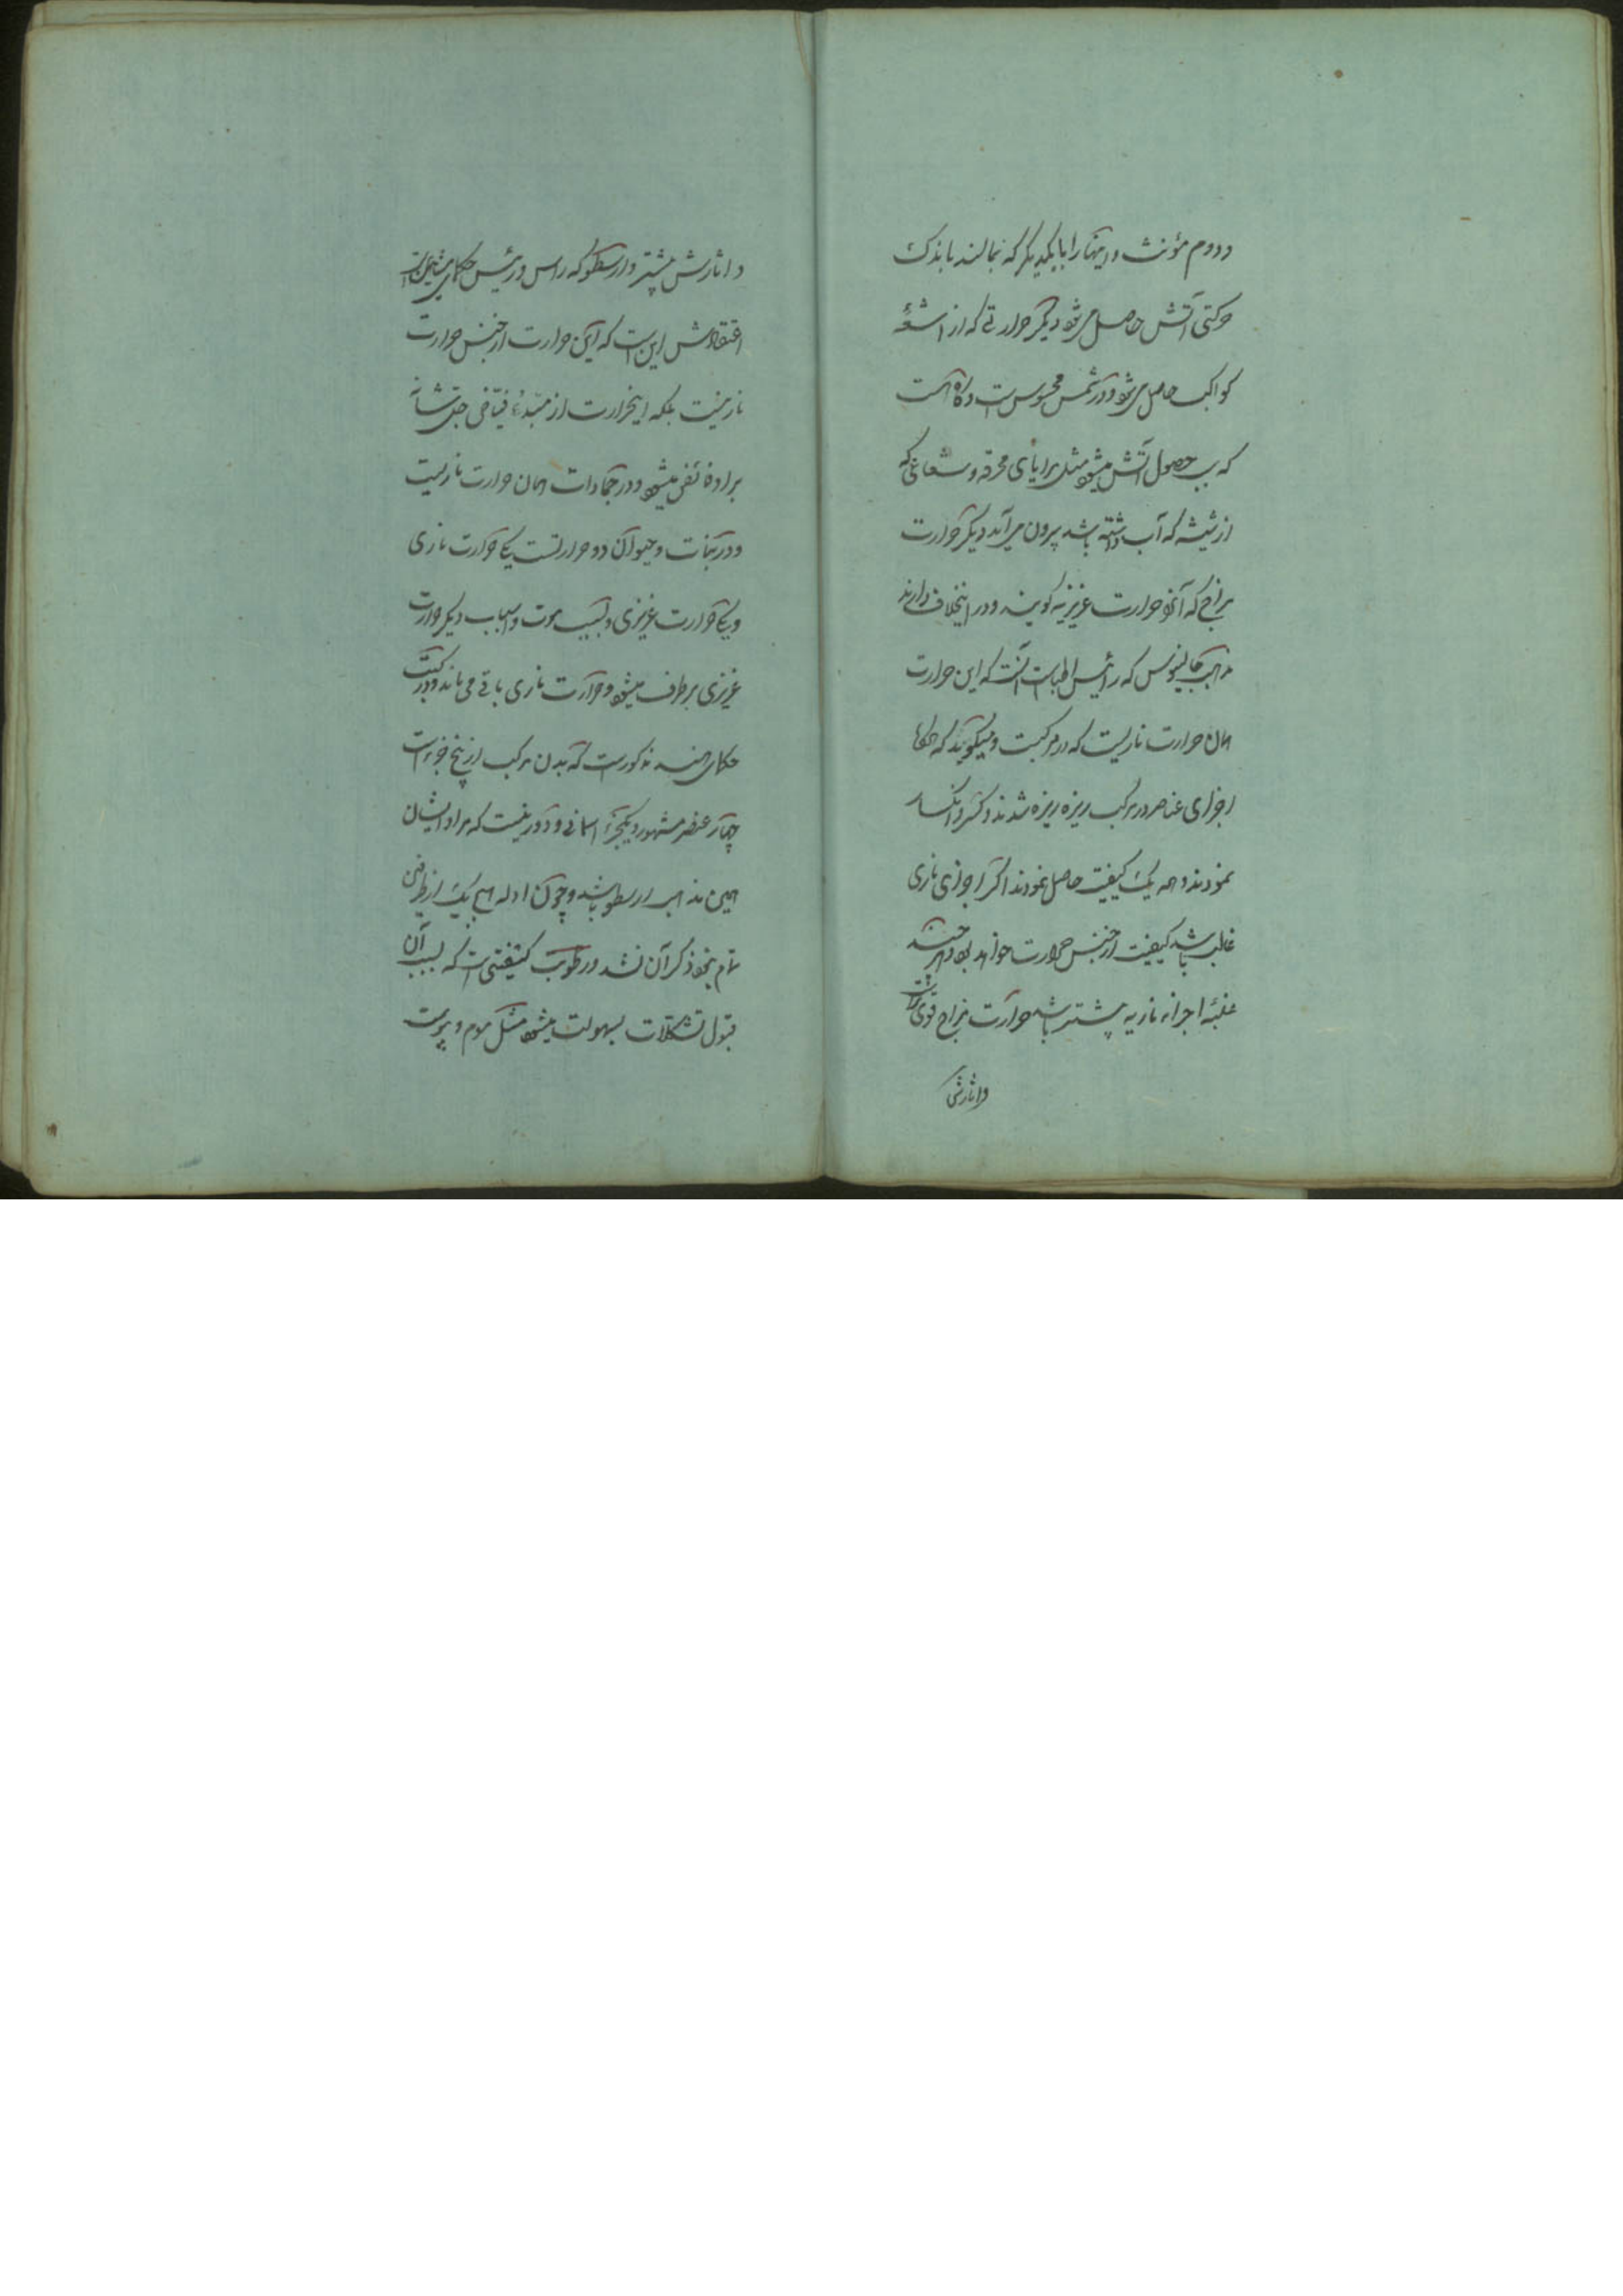 و دوم مؤنث و اینها را با یکدیگر که بمالند باندک
حرکتی آتش حاصل میشود دیگر حرارتی که از اشعهٔ
کواکب حاصل میشود و در شمس محسوس است و گاه است
که سبب حصول آتش میشود مثل مرایای محرقه و شعاعی که
از شیشه که آب داشته باشد بیرون می‌آید دیگر حرارت
مزاج که آنرا حرارت غریزیه گویند و در اینخلاف دارند
مذهب جالینوس که رئیس اطباست آنست که این حرارت
همان حرارت ناریست که در مرکبست و میگوید که هرگاه
اجزای عناصر در مرکب ریزه ریزه شدند و کسر و انکسار
نمودند و همه یک کیفیت حاصل نمودند اگر اجزای ناری
غالب باشد کیفیت از جنس حرارت خواهد بود و هرچند
غلبهٔ اجزاء ناریه بیشتر باشد حرارت مزاج قوی‌تر است
و اثارش
و اثارش بیشتر و ارسطو که راس و رئیس حکمای مشائین است
اعتقادش این است که این حرارت از جنس حرارت
نار نیست بلکه اینحرارت از مبدء فیاض جل شانه
بر او فائض میشود و در جمادات همان حرارت ناریست
و در نبات و حیوان دو حرارتست یکی حرارت ناری
و یکی حرارت غریزی و بسبب موت و اسباب دیگر حرارت
غریزی برطرف میشود و حرارت ناری باقی می ماند و در کتب
حکمای هند مذکورست که بدن مرکب از پنج جزء است
چهار عنصر مشهور و یکجزء اسمانی و دور نیست که مراد ایشان
همین مذهب ارسطو باشد و چون ادله هیچ یک از طرفین
تمام نبود ذکر آن نشد و رطوبت کیفیتی است که بسبب آن
قبول تشکلات بسهولت میشود مثل موم و یبوست